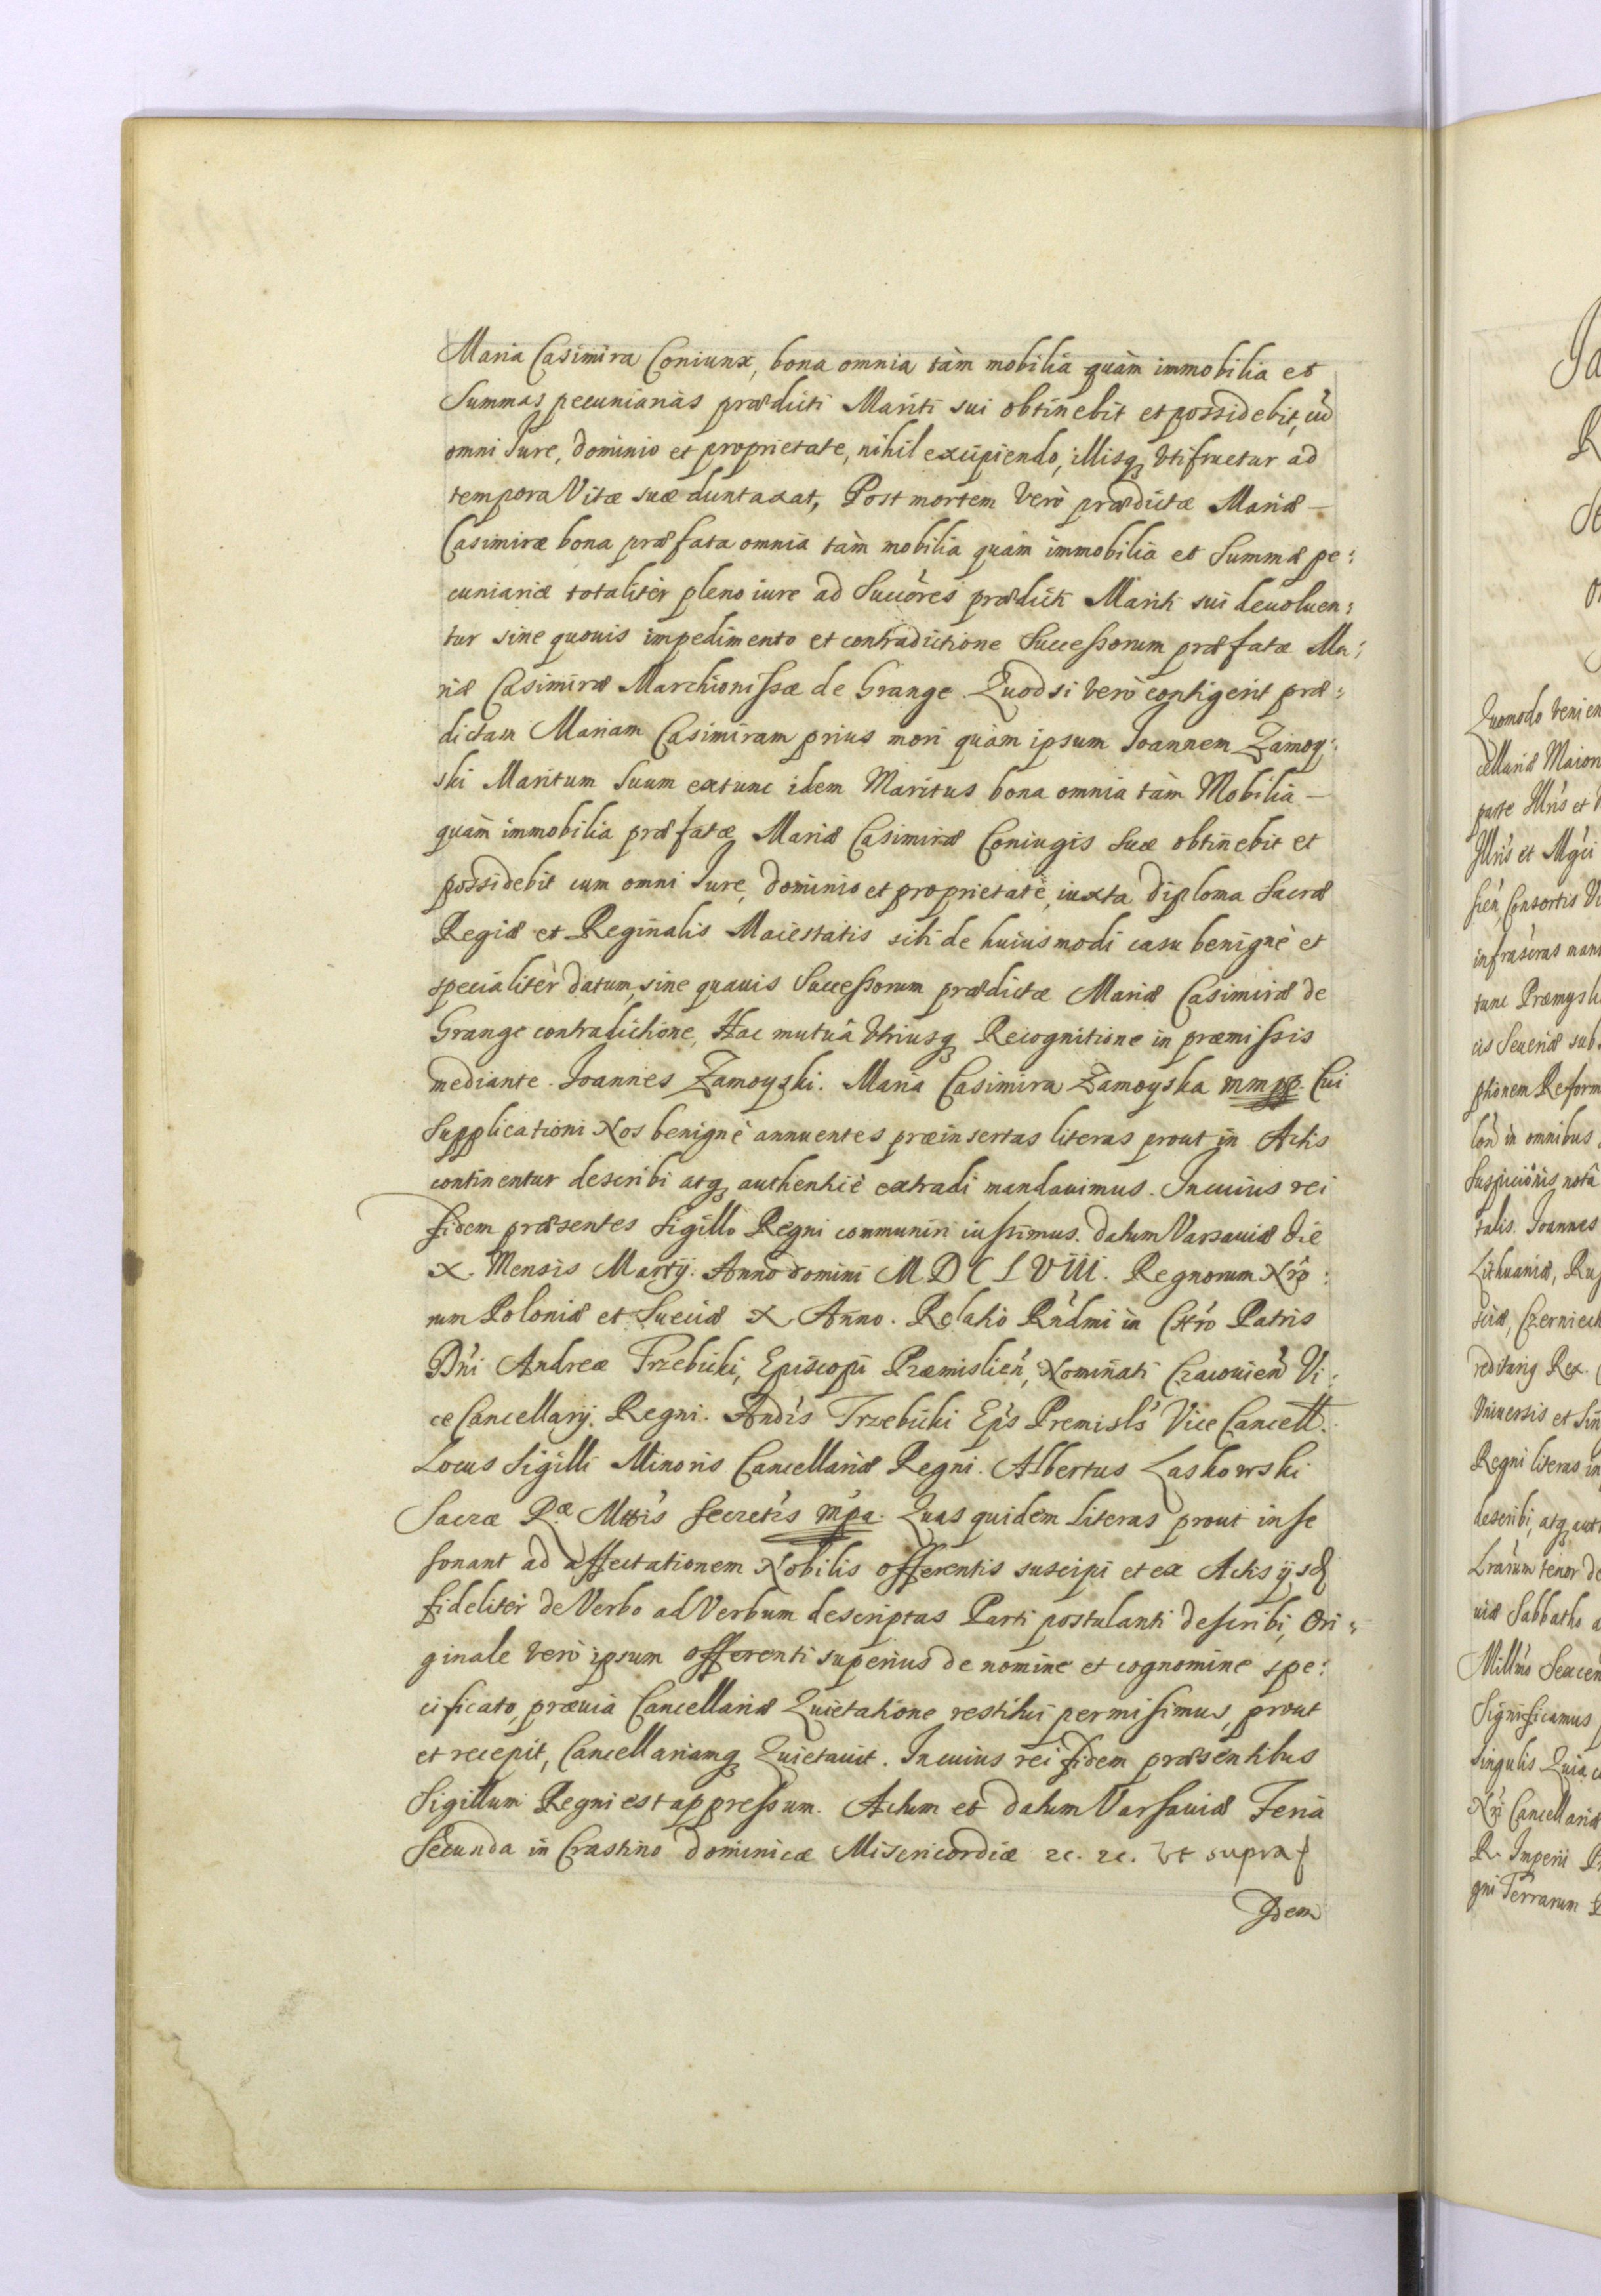 Maria Casimira Coniunx, bona omnia tàm mobilia quàm immobilia et
Summas pecuniarias prædicti Mariti sui obtinebit et possidebit, cũ
omni Iure, dominio et proprietate, nihil excipiendo, illisq₃ Vtifruetur ad
tempora Vitæ suæ duntaxat, Post mortem Verò prædictæ Mariæ –
Casimiræ bona præfata omnia tàm mobilia quàm immobilia et Summæ pe:
cuniariæ totaliter pleno iure ad Succòres prædicti Mariti sui deuoluen:
tur sine quouis impedimento et contradictione Successorum præfatæ Ma:
riæ Casimiræ Marchionissæ de Grange. Quod si Verò contigerit præ:
dictam Mariam Casimiram prius mori quàm ipsum Joannem Zamoy:
ski Maritum Suum extunc idem Maritus bona omnia tàm Mobilia –
quàm immobilia præfatæ Mariæ Casimiræ Coniugis Suæ obtinebit et
possidebit cum omni Iure, dominio et proprietate, iuxta diploma Sacræ
Regiæ et Reginalis Maiestatis sibi de huiusmodi casu benignè et
specialitèr datum, sine quauis Successorum prædictæ Mariæ Casimiræ de
Grange contradictione, Hac mutuâ Vtriusq₃ Recognitione in præmissis
mediante. Joannes Zamoyski. Maria Casimira Zamoyska mmpp. Cui
Supplicationi Nos benignè annuentes præinsertas literas prout in Actis
continentur describi atq₃ authenticè extradi mandauimus. In cuius rei
fidem præsentes Sigillo Regni communiri iussimus. datum Varsauiæ die
X. Mensis Martij. Anno domini MDCLVIII. Regnorum Nrò:
rum Poloniæ et Sueciæ X. Anno. Relatio Rńdmi in Chrò Patris
Dńi Andreæ Trzebicki, Episcopi Præmislień, Nominati Cracouień Vi:
ce Cancellarij Regni. Andís Trzebicki Epís Premisls Vice Cancell.
Locus Sigilli Minoris Cancellariæ Regni. Albertus Laskowski
Sacræ Rᵃᵉ Mttís Secretís mṕa. Quas quidem Literas prout in se
sonant ad affectationem Nobilis offerentis suscipi et ex Actis ijsd
fideliter de Verbo ad Verbum descriptas Parti postulanti describi, Ori:
ginale Verò ipsum offerenti superius de nomine et cognomine spe:
cificato, præuia Cancellariæ Quietatione restitui permisimus, prout
et recepit, Cancellariamq₃ Quietauit. In cuius rei fidem præsentibus
Sigillum Regni est appressum. Actum et datum Varsauiæ Feria
Secunda in Crastino dominicæ Misericordiæ ꝛc. ꝛc. Vt supra
Idem
Quomodo Venien
cellariæ Maior
parte Illŕis et
Illŕis et Mgći
Consortis
infrascras man
tunc
Seueriæ sub
ptionem Reform
in omnibus
Suspicioñis, notâ
talis. Joannes
Lithuaniæ, Rus
Czerniech
reditarig Rex.
Vniuersis et Sin
Regni literas in
describi, atq₃ aut
tenor de
Sabbatho a
Significamus
Singulis Quia
Nŕi Cancellariæ
Imperii
gni Terrarum